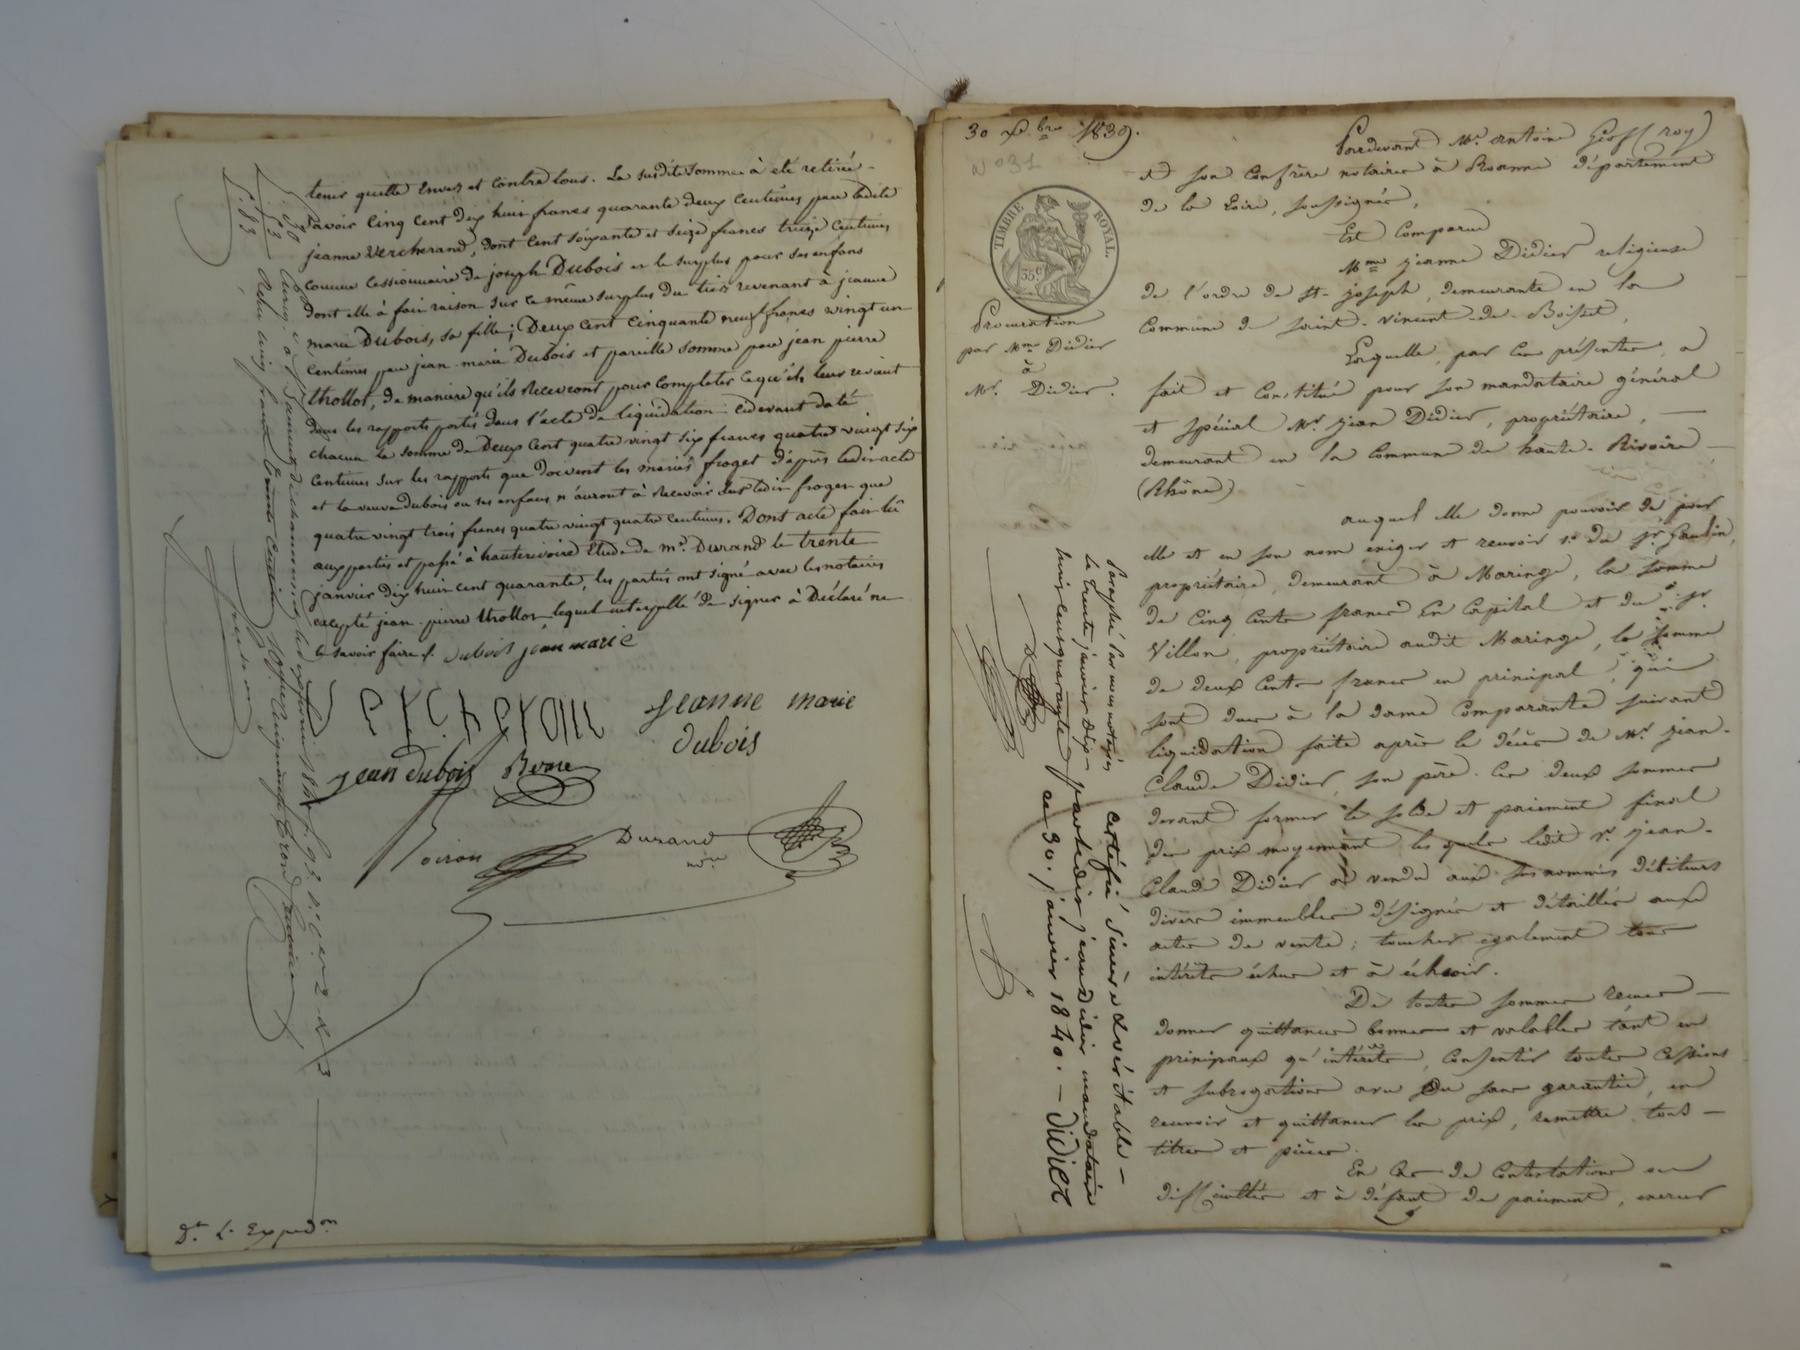 tenir quitte envers et contre tous. La susdite somme à été retirée
savoir cinq cent dix huit francs quarante deux centimes par ladite
jeanne Vercherand, dont cent soixante et seize francs treize centimes
comme cessionnaire de joseph Dubois et le surplus pour ses enfans
dont elle à fait raison sur ce même surplus du tiers revenant à jeanne
marie Dubois, sa fille; Deux cent cinquante neuf francs vingt un
centimes par jean-marie Dubois et pareille somme par jean pierre
thollot, de manière qu'ils recevront pour completer ce qu'il leur revient
dans les rapports portés dans l'acte de liquidation cidevant daté
chacun la somme de Deux cent quatre vingt six francs quatre vingt six
centimes sur les rapports que doivent les mariés froget d'après ledit acte
et la veuve dubois ou ses enfans n'auront à recevoir dudit froget que
quatre vingt trois francs quatre vingt quatre centimes. Dont acte fait lû
aux parties et passé à hauterivoire Etude de me. Durand le trente
janvier dix huit cent quarante, les parties ont signé avec les notaires
excepté jean-pierre thollot lequel interpellé de signer à Déclaré ne
le savoir faire /. dubois jean marie
jeanne marie
dubois
jean dubois
Durand
nre
Dt. L. Expedon
30 Xbre 1839.
Pardevant Me. antoine Geoffroy
et son confrère notaires à Roanne département
de la Loire, soussignés,
Est Comparue
Mme jeanne Didier religieuse
de l'ordre de St. joseph, demeurante en la
Commune de saint-Vincent-de-Boisset,
TIMBRE ROYAL
35c
Procuration
par Mme Didier
à
Mr. Didier.
Laquelle, par ces présentes, a
fait et constitué pour son mandataire général
et spécial Mr. jean Didier, propriétaire,
demeurant en la Commune de haute-Rivoire
(Rhône)
auquel elle donne pouvoir de pour
elle et en son nom exiger et recevoir 1o. du sr Gaulin,
propriétaire, demeurant à Maringe, la somme
de Cinq Cents francs en Capital et du sr.
Villon, propriétaire audit Maringe, la somme
de deux Cents francs en principal, qui
sont dues à la dame Comparante suivant
liquidation faite après le décès de Mr. jean-
Claude Didier, son père. Ces deux sommes
devant former le solde et paiement final
des prix moyennant lesquels ledit sr. jean-
Claude Didier a vendu aux susnommés débiteurs
divers immeubles désignés et détaillés aux
actes de vente; toucher également tous
intérêts échus et à échoir.
De toutes sommes reçues
donner quittances bonnes et valables tant en
principaux qu'intérêts, Consentir toutes Cessions
et subrogations avec ou sans garantie, en
recevoir et quittancer les prix, remettre tous
titres et pièces.
En Cas de Contestations ou
difficultés et à défaut de paiement, exercer
Paraphé par nous notaires
le trente janvier dix
huit cent quarante
Certifié sincère & véritable
par ledit jean didier mandataire
ce 30. janvier 1840. - Didier